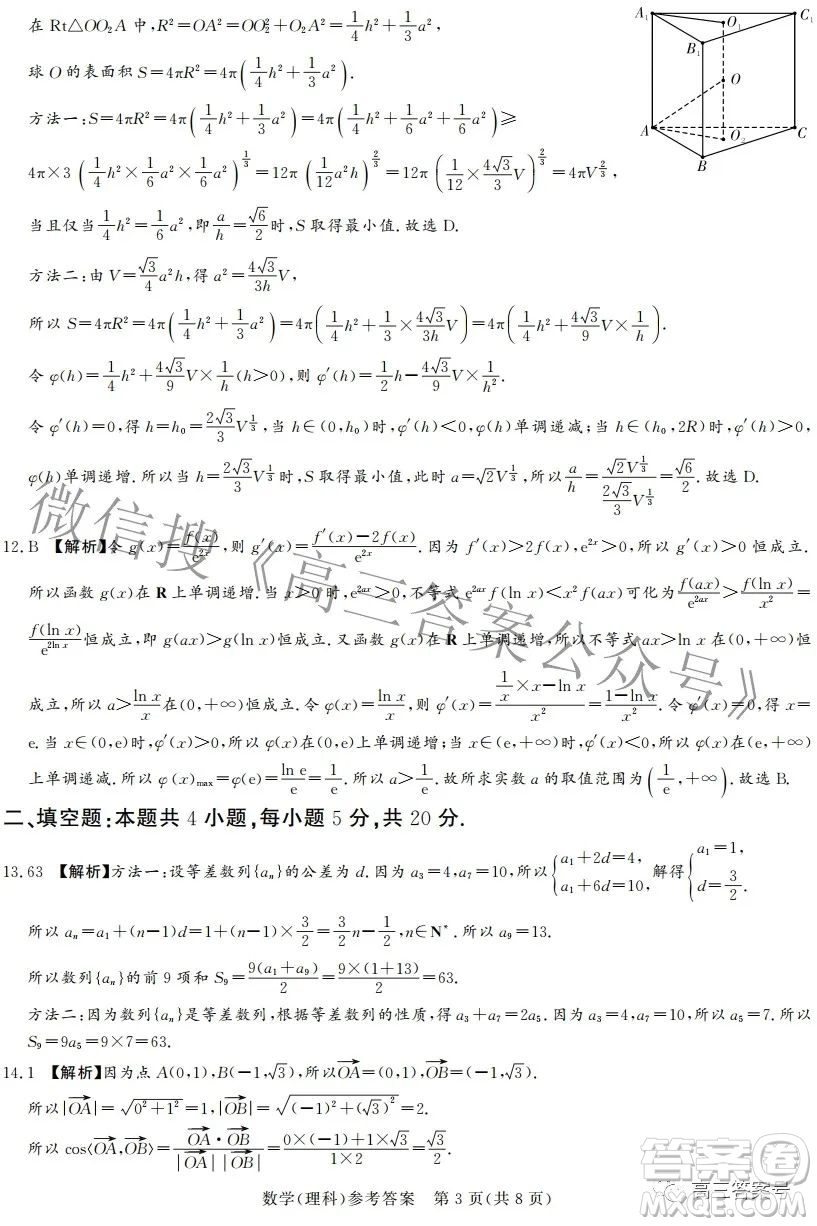 在 Rt△OO₂A 中,R²=OA²=OO₂²+O₂A²=1/4 h²+1/3 a²,
球 O 的表面积 S=4πR²=4π(1/4 h²+1/3 a²).
方法一:S=4πR²=4π(1/4 h²+1/3 a²)=4π(1/4 h²+1/6 a²+1/6 a²)≥
4π×3(1/4 h²×1/6 a²×1/6 a²)^(1/3)=12π(1/12 a²h)^(2/3)=12π(1/12×4√3/3 V)^(2/3)=4πV^(2/3),
当且仅当1/4 h²=1/6 a²,即a/h=√6/2时,S 取得最小值.故选 D.
方法二:由 V=√3/4 a²h,得 a²=4√3/3h V,
所以 S=4πR²=4π(1/4 h²+1/3 a²)=4π(1/4 h²+1/3×4√3/3h V)=4π(1/4 h²+4√3/9 V×1/h).
令 φ(h)=1/4 h²+4√3/9 V×1/h(h>0),则 φ′(h)=1/2 h−4√3/9 V×1/h².
令 φ′(h)=0,得 h=h₀=2√3/3 V^(1/3),当 h∈(0,h₀)时,φ′(h)<0,φ(h)单调递减;当 h∈(h₀,2R)时,φ′(h)>0,
φ(h)单调递增.所以当 h=2√3/3 V^(1/3)时,S 取得最小值,此时 a=√2V^(1/3),所以a/h=√2V^(1/3)/(2√3/3 V^(1/3))=√6/2.故选 D.
12.B 【解析】令 g(x)=f(x)/e^(2x),则 g′(x)=(f′(x)−2f(x))/e^(2x).因为 f′(x)>2f(x),e^(2x)>0,所以 g′(x)>0 恒成立.
所以函数 g(x)在 R 上单调递增.当 x>0 时,e^(2ax)>0,不等式 e^(2ax)f(ln x)<x²f(ax)可化为f(ax)/e^(2ax)>f(ln x)/x²=
f(ln x)/e^(2ln x)恒成立,即 g(ax)>g(ln x)恒成立.又函数 g(x)在 R 上单调递增,所以不等式 ax>ln x 在(0,+∞)恒
成立,所以 a>ln x/x在(0,+∞)恒成立.令 φ(x)=ln x/x,则 φ′(x)=(1/x×x−ln x)/x²=(1−ln x)/x².令 φ′(x)=0,得 x=
e.当 x∈(0,e)时,φ′(x)>0,所以 φ(x)在(0,e)上单调递增;当 x∈(e,+∞)时,φ′(x)<0,所以 φ(x)在(e,+∞)
上单调递减.所以 φ(x)max=φ(e)=ln e/e=1/e.所以 a>1/e.故所求实数 a 的取值范围为(1/e,+∞).故选 B.
二、填空题:本题共 4 小题,每小题 5 分,共 20 分.
13.63 【解析】方法一:设等差数列{aₙ}的公差为 d.因为 a₃=4,a₇=10,所以{a₁+2d=4, a₁+6d=10,解得{a₁=1, d=3/2.
所以 aₙ=a₁+(n−1)d=1+(n−1)×3/2=3/2 n−1/2,n∈N*.所以 a₉=13.
所以数列{aₙ}的前 9 项和 S₉=9(a₁+a₉)/2=9×(1+13)/2=63.
方法二:因为数列{aₙ}是等差数列,根据等差数列的性质,得 a₃+a₇=2a₅.因为 a₃=4,a₇=10,所以 a₅=7.所以
S₉=9a₅=9×7=63.
14.1 【解析】因为点 A(0,1),B(−1,√3),所以OA→=(0,1),OB→=(−1,√3).
所以|OA→|=√(0²+1²)=1,|OB→|=√((−1)²+(√3)²)=2.
所以 cos⟨OA→,OB→⟩=OA→·OB→/(|OA→||OB→|)=(0×(−1)+1×√3)/(1×2)=√3/2.
数学(理科)参考答案 第 3 页(共 8 页)
A₁
O₁
C₁
B₁
O
A
O₂
C
B
微信搜《高三答案公众号》
高三答案号
答案圈
MXQE.COM